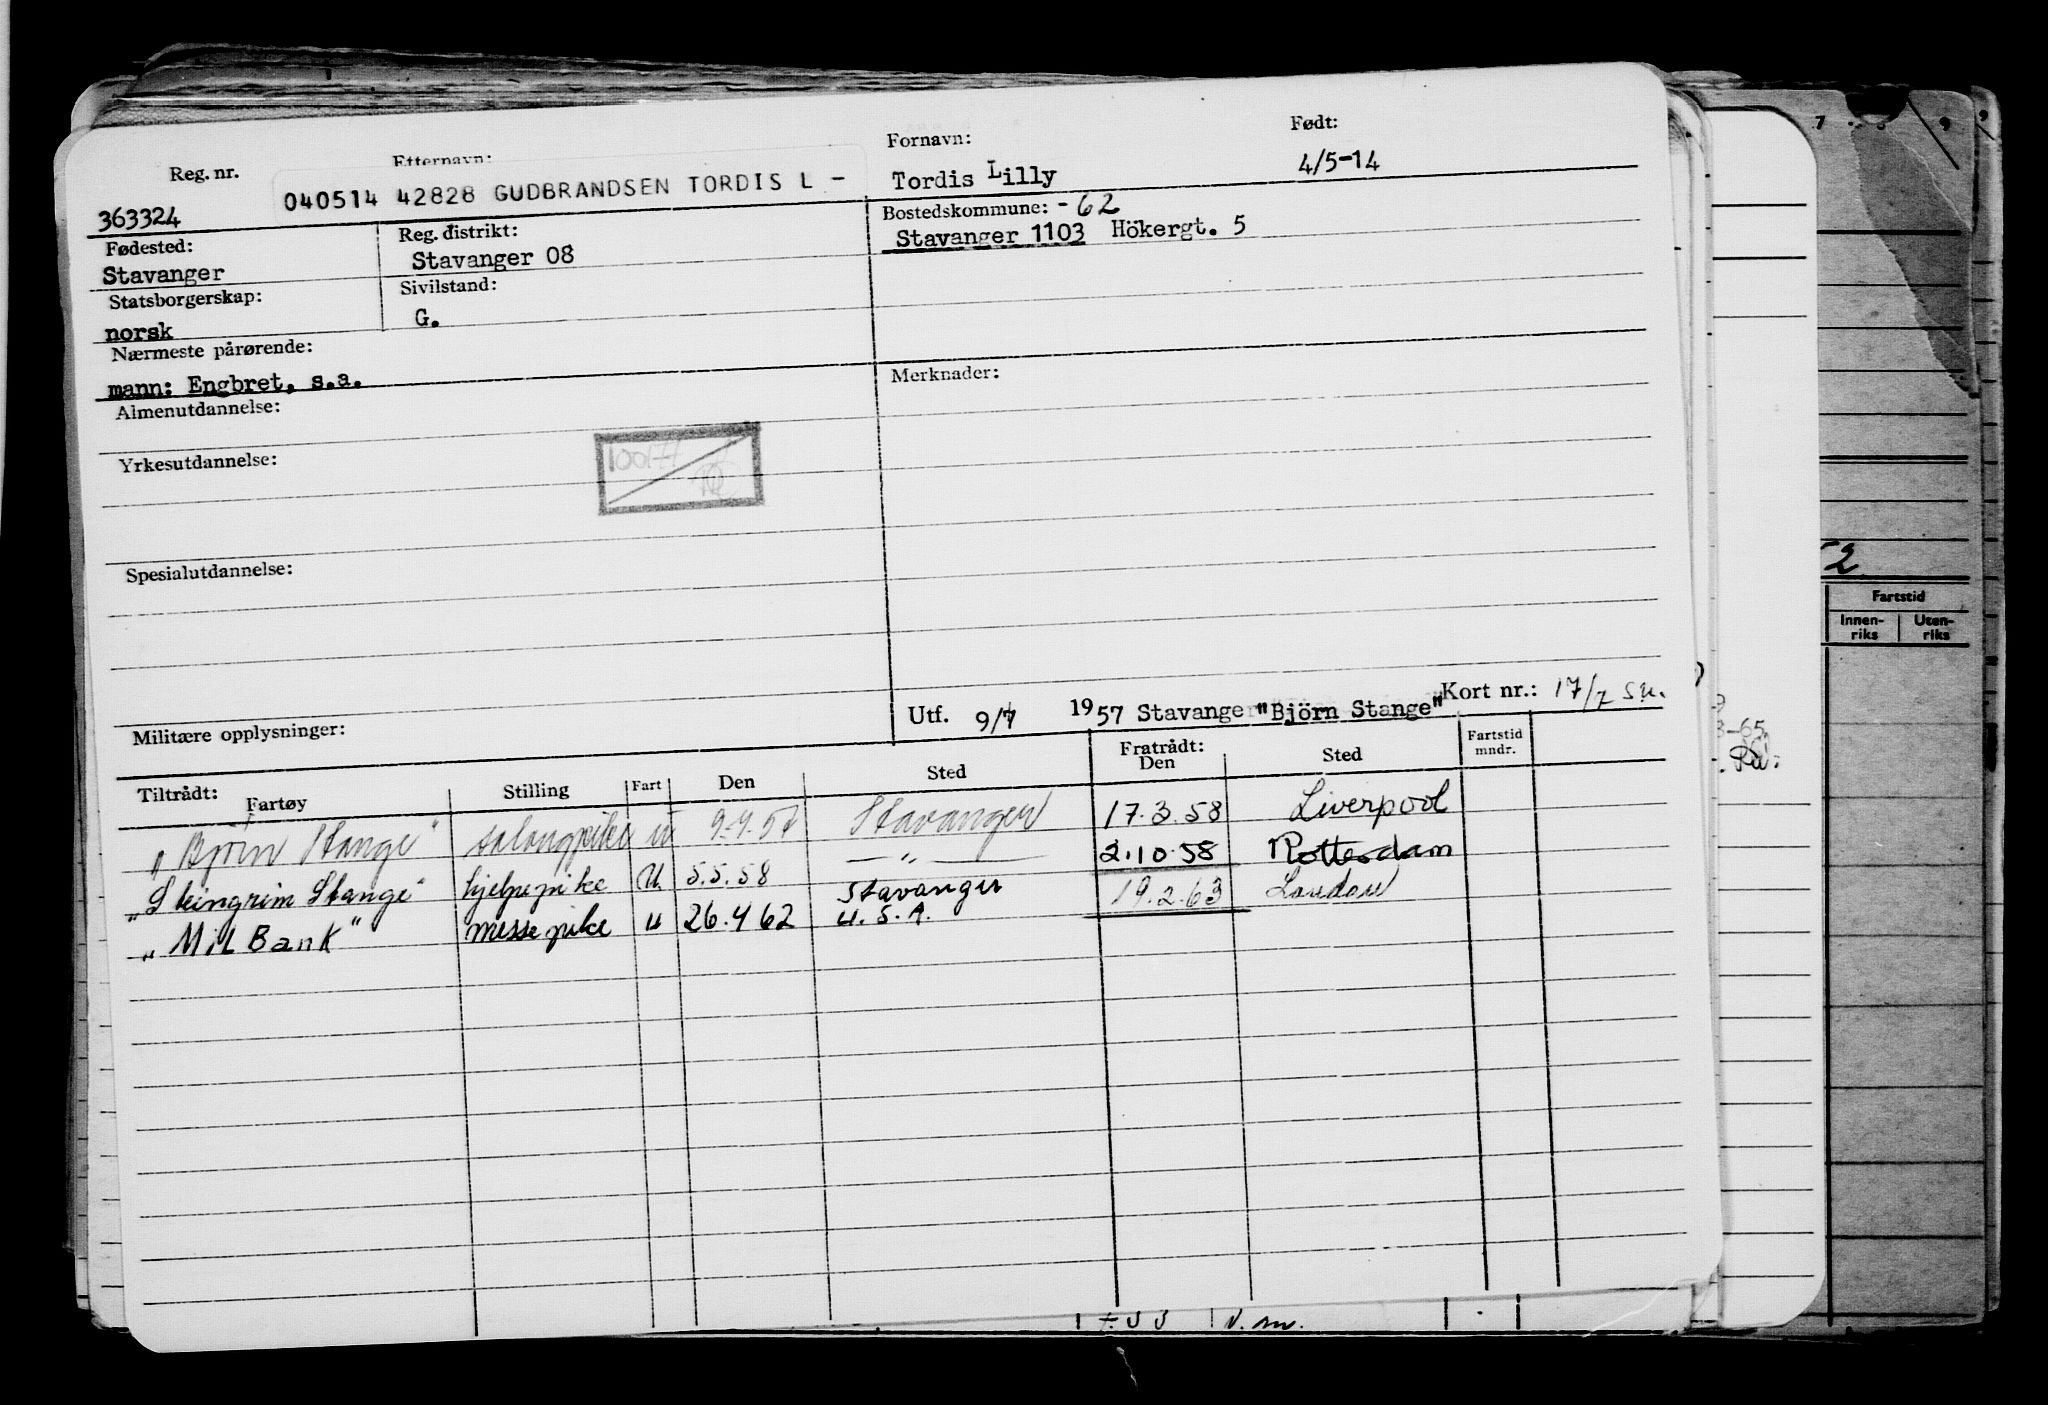 Reg. nr. Etternavn: Fornavn: Født:
363324 040514 42828 GUDBRANDSEN TORDIS L - Tordis Lilly 4/5-14
Fødested: Reg. distrikt: Bostedskommune: -62
Stavanger Stavanger 08 Stavanger 1103 Hökergt. 5
Statsborgerskap: Sivilstand:
norsk G.
Nærmeste pårørende:
mann: Engbret, s.a. Merknader:
Almenutdannelse:
Yrkesutdannelse:
Spesialutdannelse:
Militære opplysninger: Utf. 1957 Stavanger "Björn Stange" Kort nr.: 17/7 sn.
Tiltrådt: Fratrådt: Fartstid
Fartøy Stilling Fart Den Sted Den Sted mndr.
"Bjørn Stange" salongpike u Stavanger 17.3.58 Liverpool
"Steingrim Stange" hjelpepike U. 5.5.58 — " — 2.10.58 Rotterdam
"Mil Bank" messepike u 26.4 62 Stavanger U.S.A. 19.2.63 London
Fartstid
Innen-riks Uten-riks